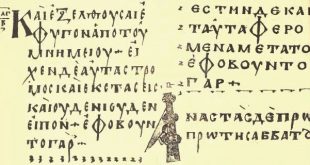 ΚΑΙΕΞΕΛΘΟΥϹΑΙΕ
ΦΥΓΟΝΑΠΟΤΟΥ
ΜΝΗΜΕΙΟΥ+ΕΙ
ΧΕΝΔΕΑΥΤΑϹΤΡΟ
ΜΟϹΚΑΙΕΚϹΤΑϹΕΙϹ
ΚΑΙΟΥΔΕΝΙΟΥΔΕΝ
ΕΙΠΟΝ+ΕΦΟΒΟΥΝ
ΤΟΓΑΡ+
ΕϹΤΗΝΔΕΚΑΙ
ΤΑΥΤΑΦΕΡΟ
ΜΕΝΑΜΕΤΑΤΟ
ΕΦΟΒΟΥΝΤΟ
ΓΑΡ+
ΑΝΑϹΤΑϹΔΕΠΡΩΙ
ΠΡΩΤΗϹΑΒΒΑΤΟΥ